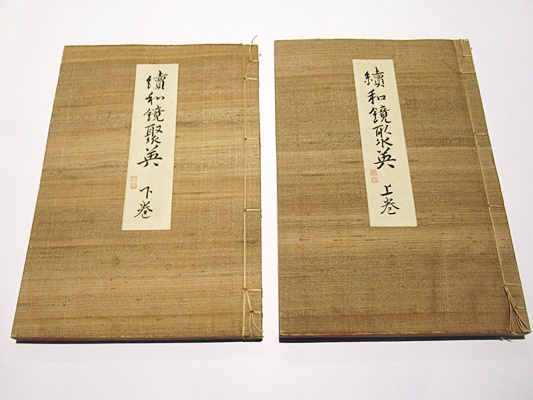 續和鏡聚英 上巻
續和鏡聚英 下巻